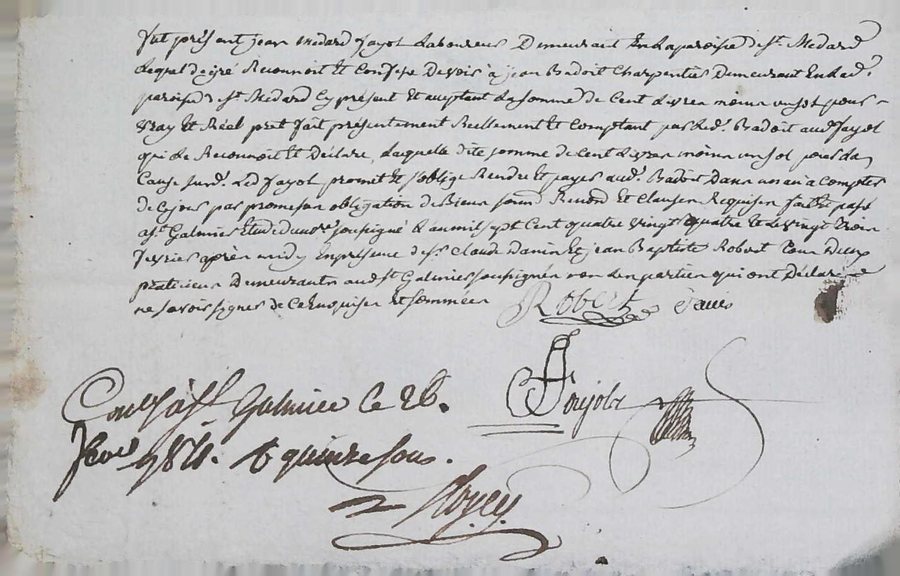 fut présent jean medard fayol Laboureur Demeurant En La paroisse de st. Medard
Lequel de gré Reconnoit Et Confesse Devoir à jean Badoit Charpentier Demeurant En Lad.
paroisse st Medard Cy présent Et aceptant La somme de Cent Livres moins un sol pour
vray Et Réel prêt fait présentement Réellement Et Comptant par Led. Badoit aud. fayol
qui Le Reconnoit Et Déclare, Laquelle dite somme de Cent Livres moins un sol pour La
Cause Susd. Led fayol promet Et s'oblige Rendre Et payer aud. Badoit Dans un an à Compter
de Ce jour par promesse obligation de Biens soumis Renon Et Clauses Requises fait Et passé
a st Galmier Etude du no.re soussigné L'an mil sept Cent quatre vingt quatre Et Le vingt trois
fevrier après midy En présence de s. Claude Danin Et jean Baptiste Robert tous Deux
praticiens Demeurants aud. st Galmier soussignés non Les parties qui ont Déclaré
ne savoir signer de Ce Enquises Et sommées
Robert
Conlé à st Galmier Ce 26.
fevr 1784. R quinze sous.